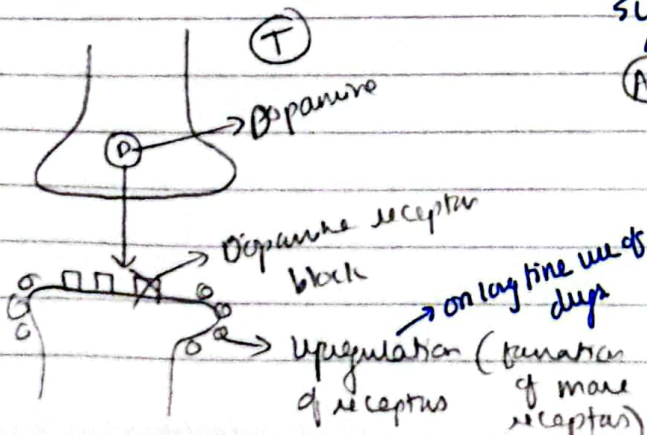 T
Dopamine
D
Dopamine receptor
block
on long time use of
drugs
Upregulation (formation
of receptors
of more
receptors)